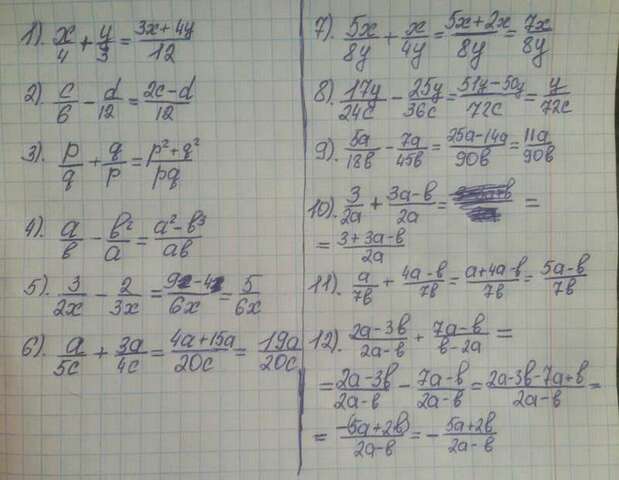 1). x/4 + y/3 = 3x+4y/12
2). c/6 - d/12 = 2c-d/12
3). p/q + q/p = p²+q²/pq
4). a/в - в²/a = a²-в³/aв
5). 3/2x - 2/3x = 9-4/6x = 5/6x
6). a/5c + 3a/4c = 4a+15a/20c = 19a/20c
7). 5x/8y + x/4y = 5x+2x/8y = 7x/8y
8). 17y/24c - 25y/36c = 51y-50y/72c = y/72c
9). 5a/18в - 7a/45в = 25a-14a/90в = 11a/90в
10). 3/2a + 3a-в/2a = =
= 3+3a-в/2a
11). a/7в + 4a-в/7в = a+4a-в/7в = 5a-в/7в
12). 2a-3в/2a-в + 7a-в/в-2a =
= 2a-3в/2a-в - 7a-в/2a-в = 2a-3в-7a+в/2a-в =
= -(5a+2в)/2a-в = - 5a+2в/2a-в